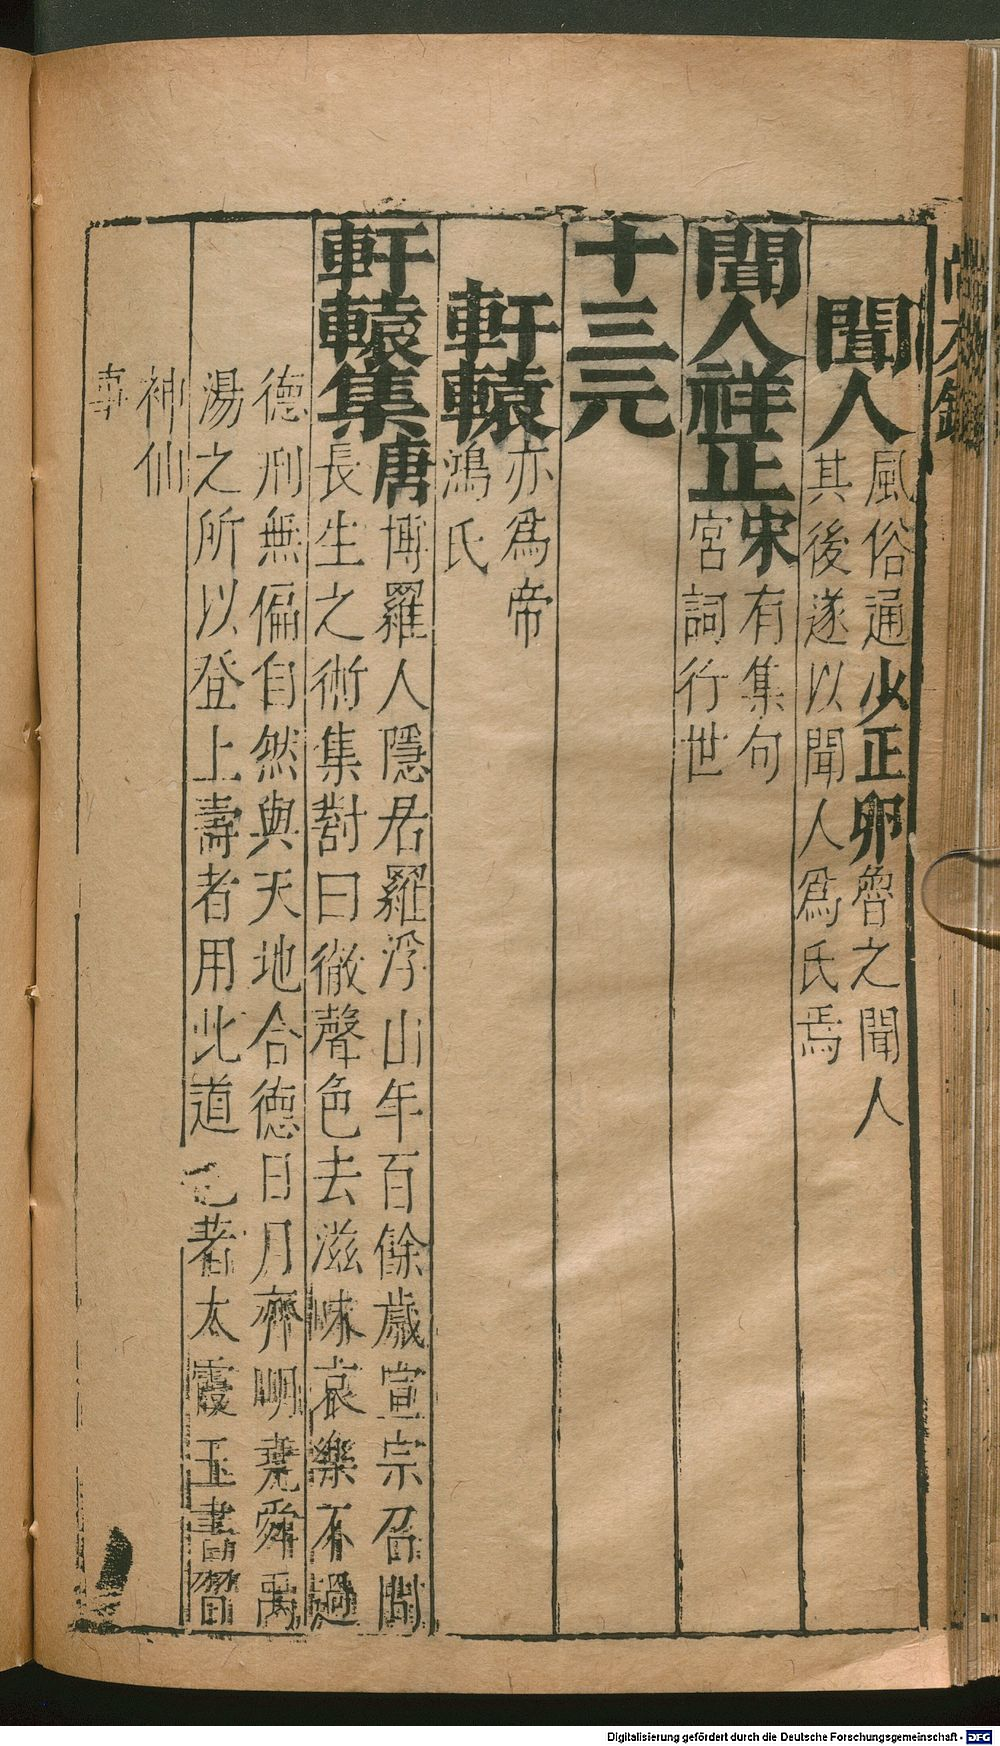 聞人風俗通少正卯魯之聞人
其後遂以聞人爲氏焉
聞人祥正宋有集句
宮詞行世
十三元
軒轅亦爲帝
鴻氏
軒轅集唐博羅人隱居羅浮山年百餘歲宣宗召問
長生之術集對曰徹聲色去滋味哀樂不過
德刑無偏自然與天地合德日月齊明堯舜禹
湯之所以登上壽者用此道也著太霞玉書習
神仙
事
Digitalisierung gefördert durch die Deutsche Forschungsgemeinschaft - DFG